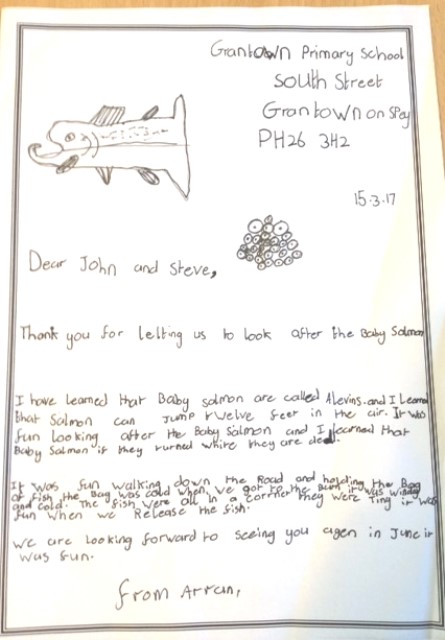 Grantown Primary School
South Street
Grantown on Spey
PH26 3HZ
15.3.17
Dear John and Steve,
Thank you for letting us to look after the Baby Salmon
I have learned that Baby salmon are called Alevins. and I Learnd
that Salmon can Jump twelve feet in the air. It was
fun looking after the Baby Salmon and I learned that
Baby Salmon if they turned white they are dead.
It was fun walking down the Road and holding the Bag
of fish the Bag was cold when we got to the Burn it was windy
and cold. The fish were all in a corrner they were Tiny it was
fun when we Release the fish.
we are looking forward to seeing you agen in June it
was fun.
from Arran,